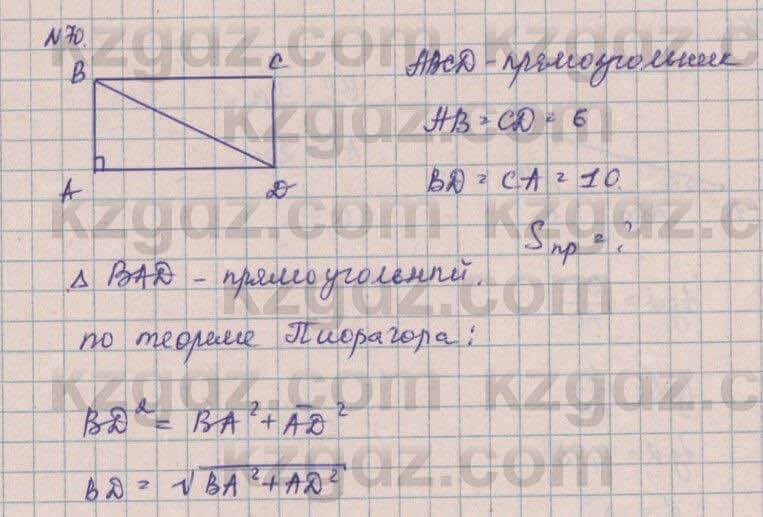 N70.
B C
ABCD - прямоугольник
AB = CD = 6
A D
BD = CA = 10.
Sпр = ?
Δ BAD - прямоугольний.
по теореме Пиорагора:
BD² = BA² + AD²
BD = √BA² + AD²
kzgdz.com kzgdz.com
kzgdz.com
kzgdz.com kzgdz.com
kzgdz.com
kzgdz.com kzgdz.com
kzgdz.com